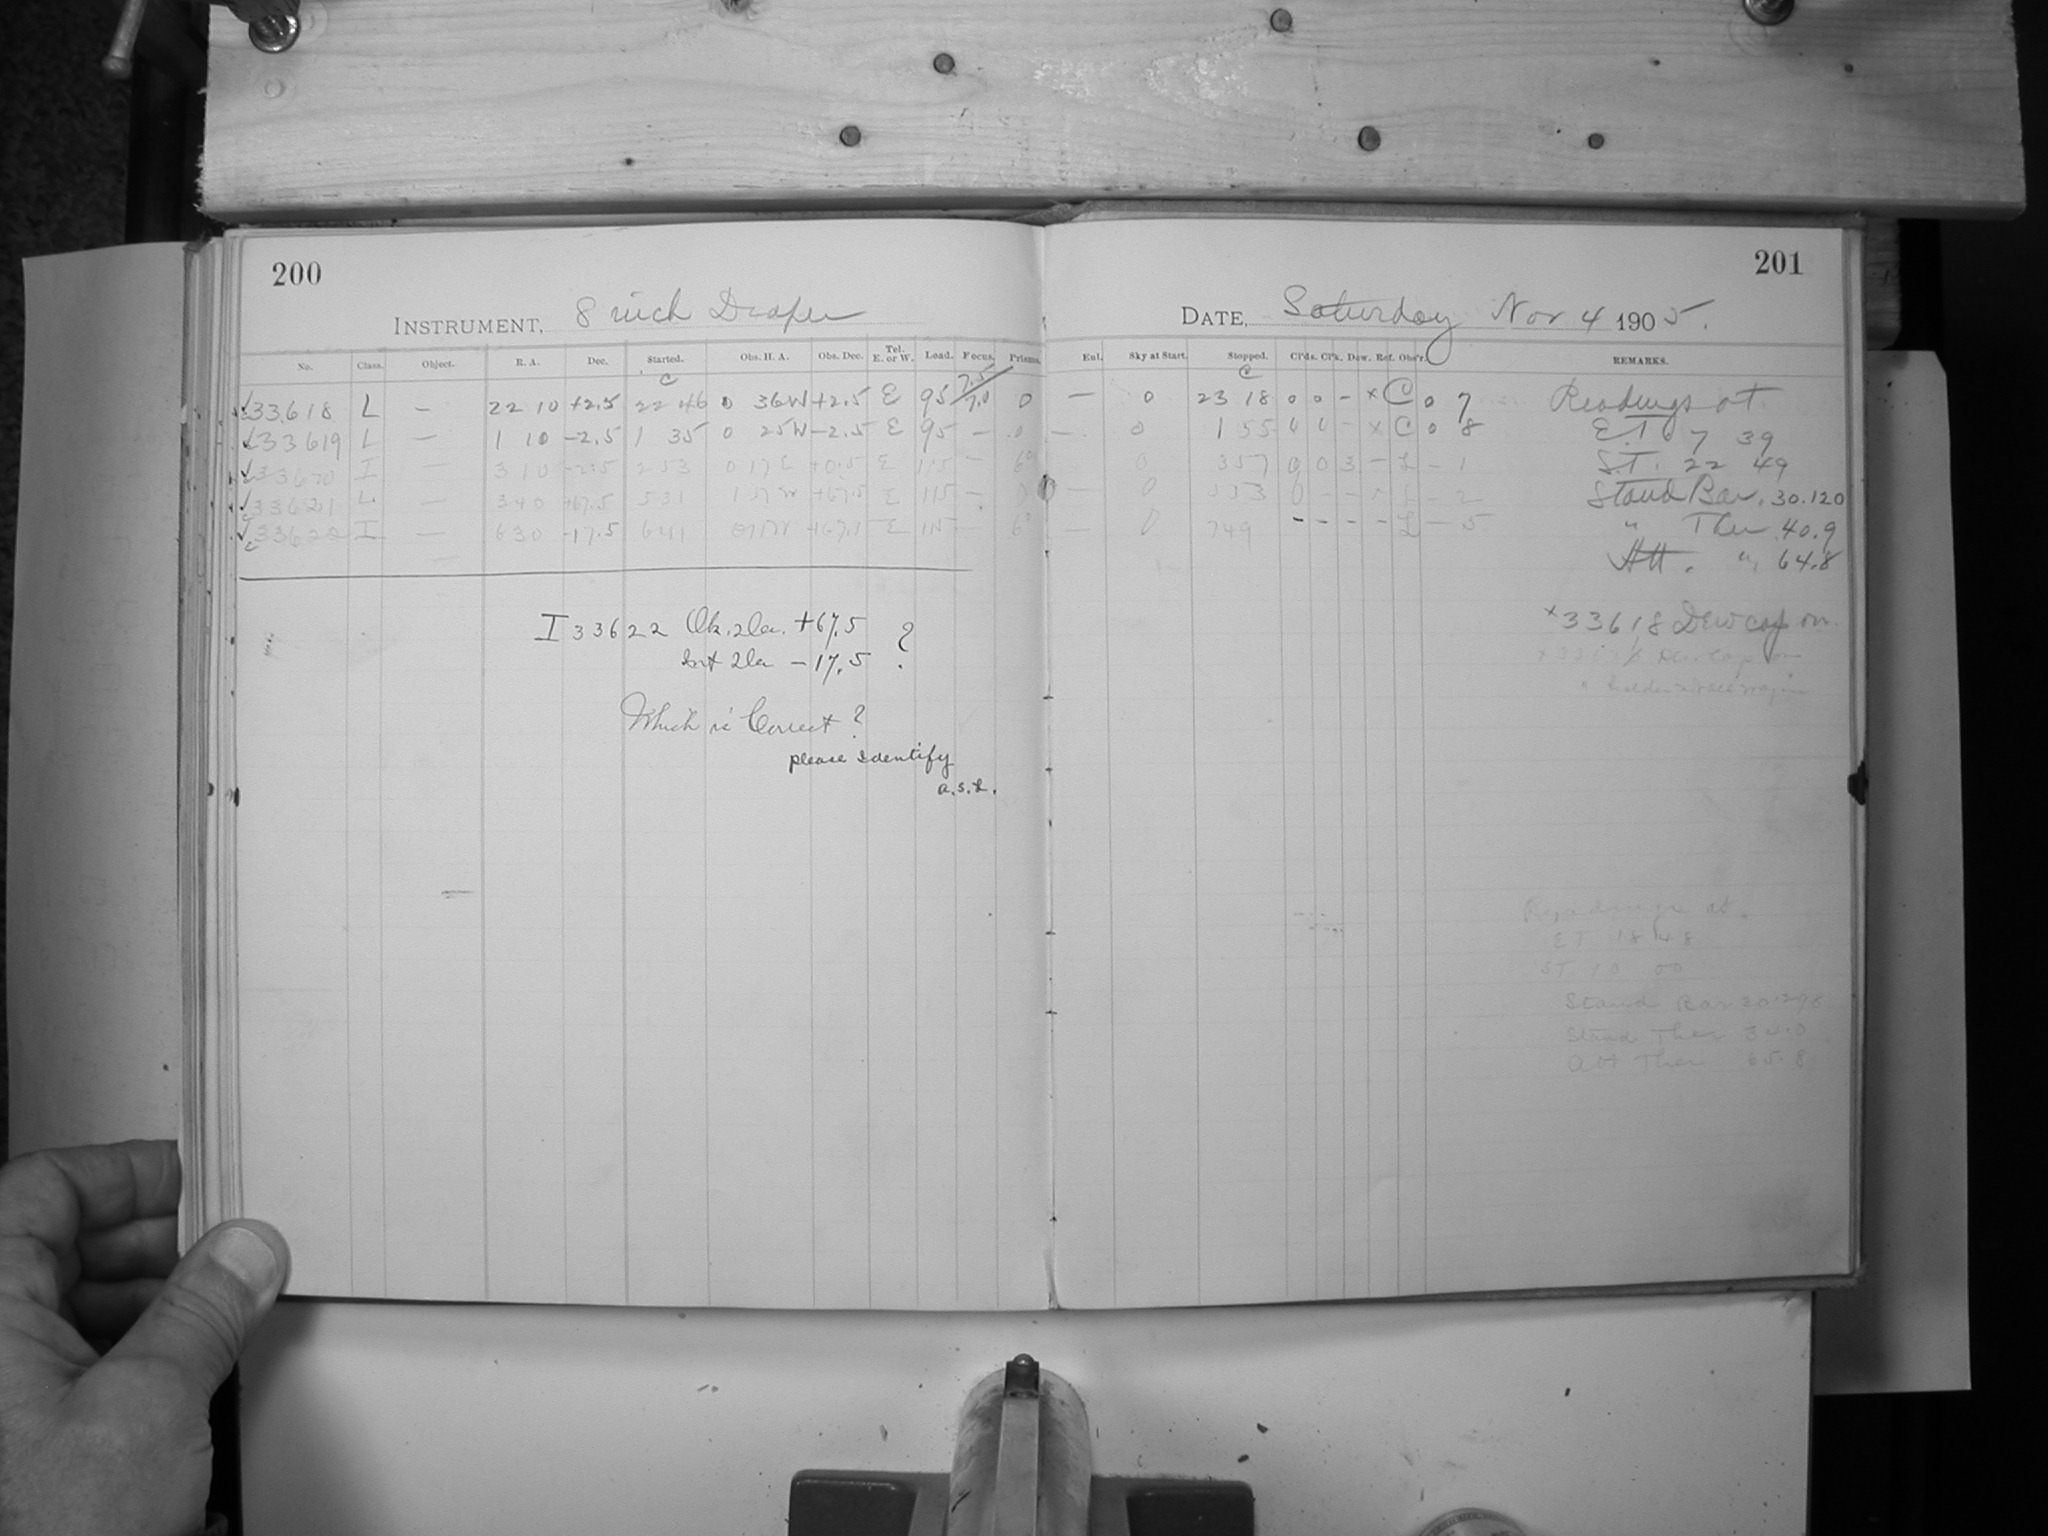 200
INSTRUMENT, 8 inch Draper
No. Class. Object. R. A. Dec. Started. Obs. H. A. Obs. Dec. Tel. E. or W. Load. Focus. Prisms.
C 7.5
33618 L — 22 10 +2.5 22 46 0 36W +2.5 E 95 7.0 0
33619 L — 1 10 -2.5 1 35 0 25W -2.5 E 95 — 0
I — 3 10 -2.5 2 53 0 17 E +0.5 E 115 — 6°
33621 L — 3 40 +67.5 5 31 +67.5 E 115 — 0
33622 I — 6 30 -17.5 6 41 +67.5 E 115 — 6°
I 33622 Ob. Dec. +67.5 ?
Int Dec -17.5
Which is Correct?
please identify
a.s.L.
201
DATE, Saturday Nov 4 1905.
Exl. Sky at Start. Stopped. Cl'ds. Cl'k. Dew. Ref. Obs'r. REMARKS.
C
— 0 23 18 0 0 - x C 0 7 Readings at
— 0 1 55 0 0 - x C 0 8 E.T. 7 39
0 3 57 0 0 3 - L - 1 S.T. 22 49
— 0 5 53 0 - - L - 2 Stand Bar. 30.120
— 0 7 49 - - - - L - 5 " Ther 40.9
Att. " 64.8
x 33618 Dew cap on.
Dew cap on
Readings at.
ET 18 48
ST 10 00
Stand Bar
Stand Ther
Att Ther 65.8